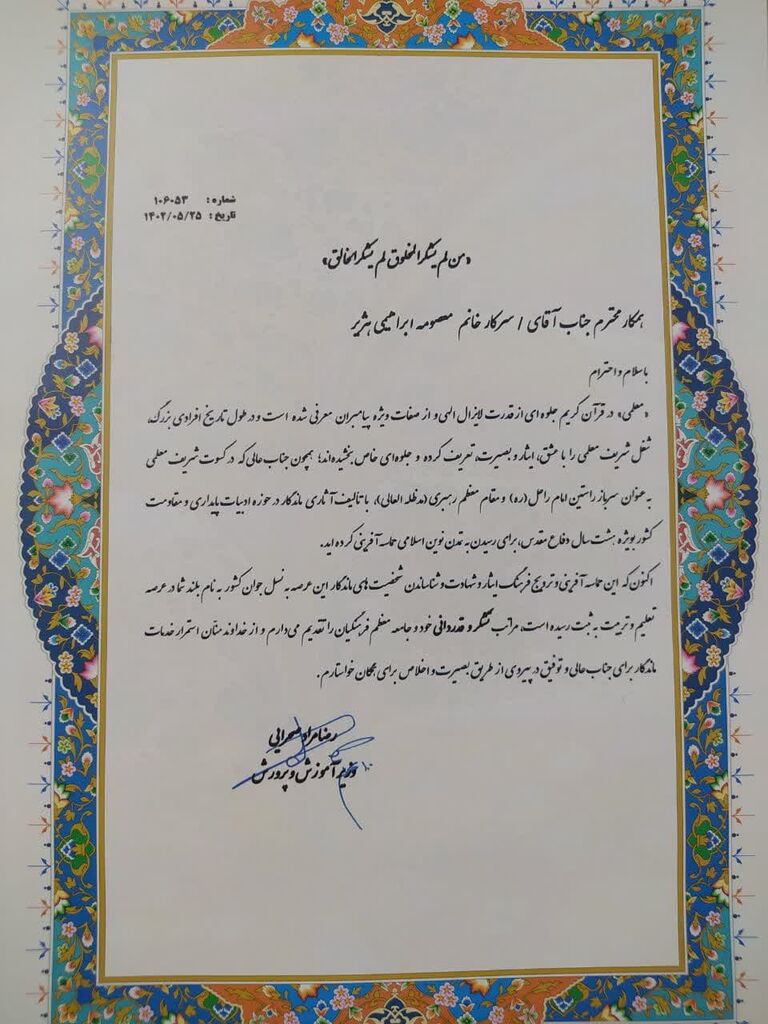 شماره : ۱۰۶۰۵۳
تاریخ : ۱۴۰۲/۰۵/۲۵
«من لم یشکر المخلوق لم یشکر الخالق»
همکار محترم جناب آقای / سرکار خانم معصومه ابراهیمی هژیر
با سلام و احترام
«معلمی» در قرآن کریم جلوه ای از قدرت لایزال الهی و از صفات ویژه پیامبران معرفی شده است و در طول تاریخ افرادی بزرگ،
شغل شریف معلمی را با عشق، ایثار و بصیرت، تعریف کرده و جلوه‌ای خاص بخشیده‌اند؛ همچون جناب عالی که در کسوت شریف معلمی
به عنوان سرباز راستین امام راحل (ره) و مقام معظم رهبری (مدظله العالی)، با تالیف آثاری ماندگار در حوزه ادبیات پایداری و مقاومت
کشور بویژه هشت سال دفاع مقدس، برای رسیدن به تمدن نوین اسلامی حماسه آفرینی کرده اید.
اکنون که این حماسه آفرینی و ترویج فرهنگ ایثار و شهادت و شناساندن شخصیت های ماندگار این عرصه به نسل جوان کشور به نام بلند شما در عرصه
تعلیم و تربیت به ثبت رسیده است، مراتب تشکر و قدردانی خود و جامعه معظم فرهنگیان را تقدیم می‌دارم و از خداوند منّان استمرار خدمات
ماندگار برای جناب عالی و توفیق در پیروی از طریق بصیرت و اخلاص برای همگان خواستارم.
رضامراد صحرایی
وزیر آموزش و پرورش